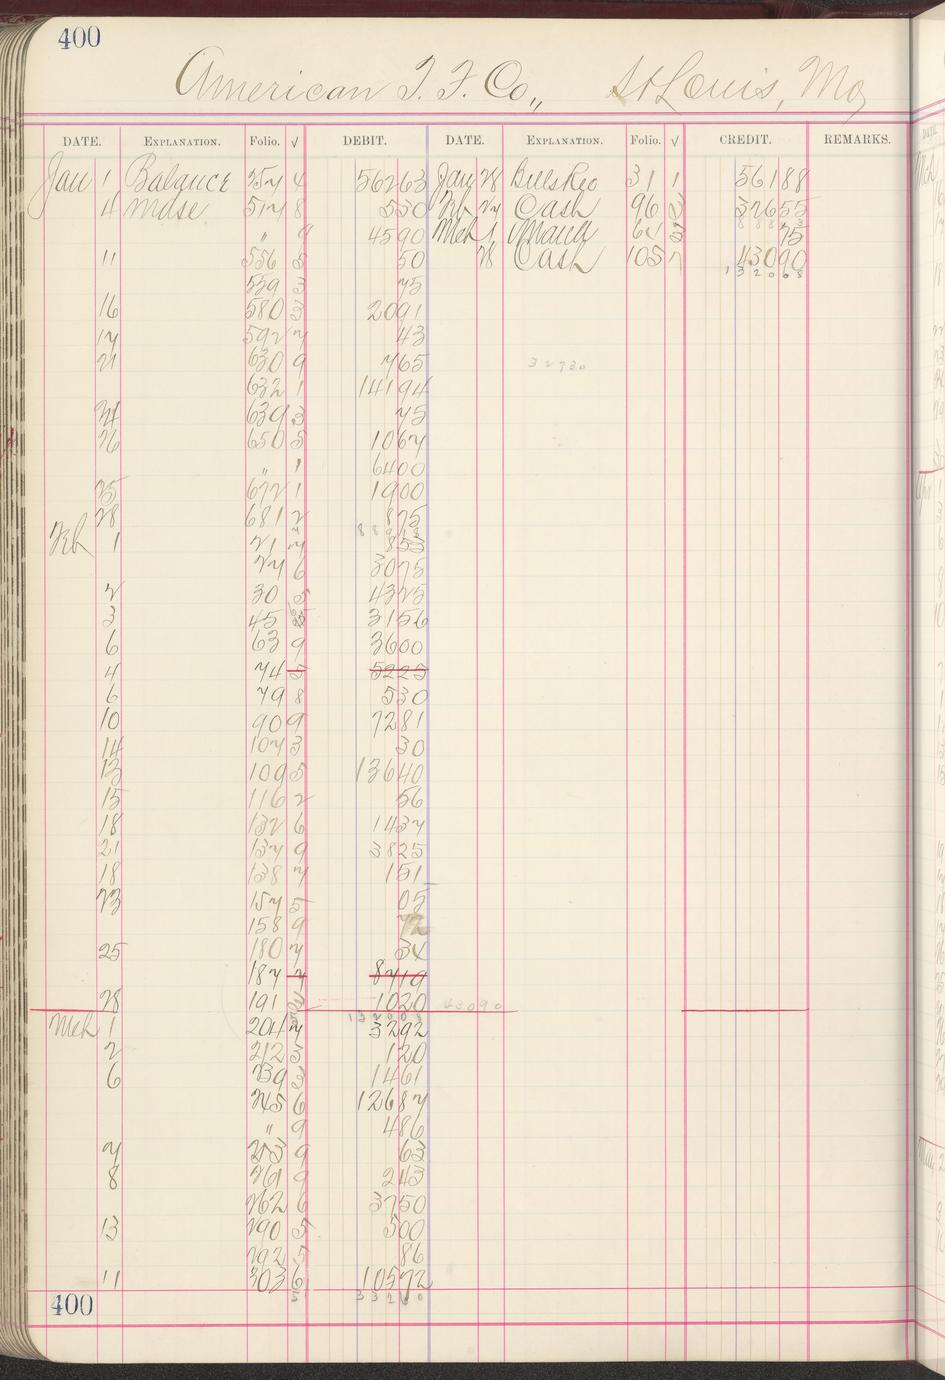 400
American T. F. Co., St Louis, Mo,
DATE. EXPLANATION. Folio. √ DEBIT. DATE. EXPLANATION. Folio. √ CREDIT. REMARKS.
Jan 1 Balance 4 56263 Jan 28 Bills Rec 311 561 88
4 Mdse 517 8 530 Feb 27 Cash 96 2 326 55
" 9 4590 Mch 1 Manq 64 3 75
11 556 5 50 28 Cash 105 7 430 90
559 3 75 1320 68
16 580 3 2091
17 592 7 43
21 630 9 765 32730
632 1 14194
24 639 3 75
26 650 5 1067
" 1 6400
25 672 1 1900
28 681 2 875
Feb 1 21 7 853
27 6 3075
2 30 5 4325
3 45 3156
6 63 9 3600
4 74 5 5225
6 79 8 530
10 90 9 7281
14 107 3 30
13 109 5 13640
15 116 2 56
18 132 6 1437
21 137 9 3825
18 138 7 151
23 157 5 05
158 9 72
25 180 7 34
187 7 8719
28 191 1020 43090
Mch 1 204 7 3292
2 212 5 120
6 239 3 1461
245 6 12687
" 9 486
7 253 9 63
8 261 9 243
262 6 3750
13 290 5 500
292 5 86
11 303 6 10572
400